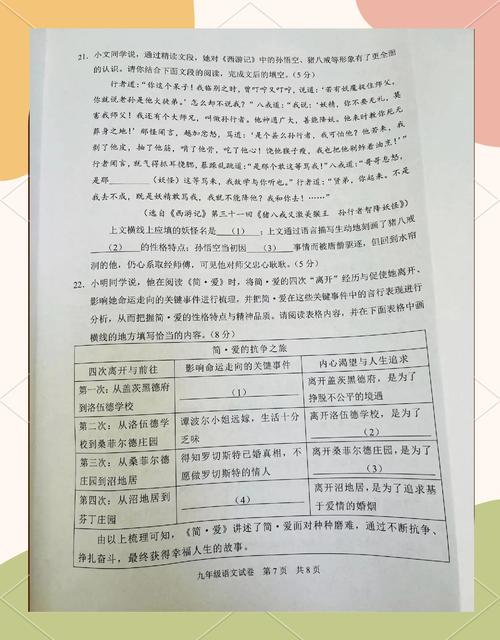 21. 小文同学说，通过精读文段，她对《西游记》中的孙悟空、猪八戒等形象有了更全面
的认识。请你结合下面文段的阅读，完成文后的填空。（5分）
行者道：“你这个呆子！我临别之时，曾叮咛又叮咛，说道：‘若有妖魔捉住师父，
你就说老孙是他大徒弟。’怎么却不说我？”八戒道：“我说：‘妖精，你不要无礼，莫
害我师父！我还有个大师兄，叫做孙行者。他神通广大，善能降妖。他来时教你死无
葬身之地！’那怪闻言，越加忿怒，骂道：‘是个甚么孙行者，我可怕他？他若来，我
剥了他皮，抽了他筋，啃了他骨，吃了他心！饶他猴子瘦，我也把他剁鲊着油烹！’”
行者闻言，就气得抓耳挠腮，暴躁乱跳道：“是那个敢这等骂我！”八戒道：“哥哥息怒，
是那______（妖怪）这等骂来，我故学与你听也。”行者道：“贤弟，你起来。不是
我去不成，既是妖精敢骂我，我就不能降他？我和你去！……”
（选自《西游记》第三十一回《猪八戒义激美猴王 孙行者智降妖怪》）
上文横线上应填的妖怪名是（1）；上文通过语言描写生动地刻画了猪八戒
（2）的性格特点；孙悟空当初因（3）事情而被唐僧驱逐，但回到水帘
洞的他，仍心系取经师傅，可见他对师父忠心耿耿。（5分）
22. 小明同学说，他在阅读《简·爱》时，将简·爱的四次“离开”经历与促使她离开、
影响她命运走向的关键事件进行梳理，并把简·爱在这些关键事件中的言行表现进行
分析，从而把握简·爱的性格特点与精神品质。请阅读表格内容，并在下面表格中画
横线的地方填写恰当的内容。（8分）
简·爱的抗争之旅
四次离开与前往 影响命运走向的关键事件 内心渴望与人生追求
第一次：从盖茨黑德府
到洛伍德学校
（1）
离开盖茨黑德府，是为了
挣脱不公平的境遇
第二次：从洛伍德学
校到桑菲尔德庄园
谭波尔小姐远嫁，生活十分
乏味
离开洛伍德学校，是为了
（2）
第三次：从桑菲尔德
庄园到沼地居
得知罗切斯特已婚真相，不
愿做罗切斯特的情人
离开桑菲尔德庄园，是为了
（3）
第四次：从沼地居到
芬丁庄园
（4）
离开沼地居，是为了追求基
于爱情的婚姻
由以上梳理可知，《简·爱》讲述了简·爱面对种种磨难，通过不断抗争、
挣扎奋斗，最终获得幸福人生的故事。
九年级语文试卷 第7页 共8页